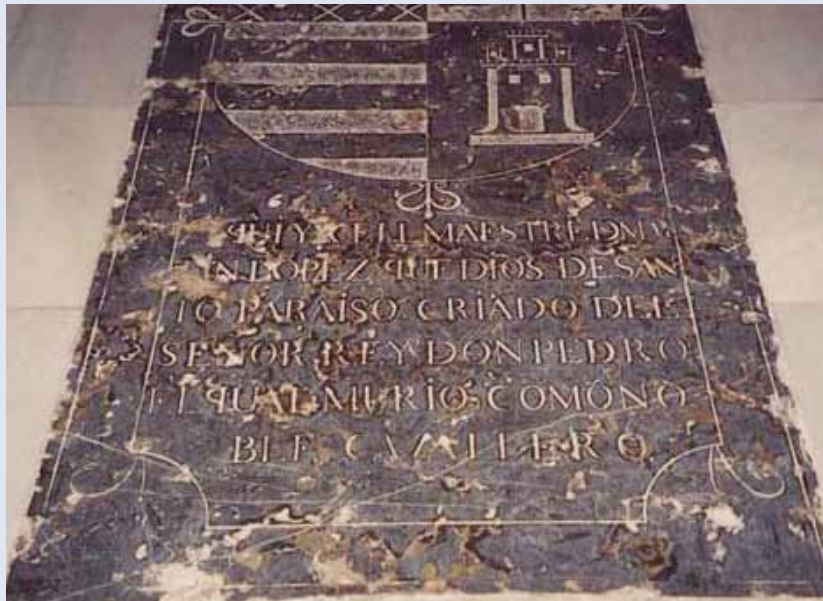 QUIYACE EL MAESTRE DMR
TIN LOPEZ QUE DIOS DE SAN
TO PARAISO CRIADO DEL
SEÑOR REY DON PEDRO
EL QUAL MURIO COMO NO
BLE CAVALLERO